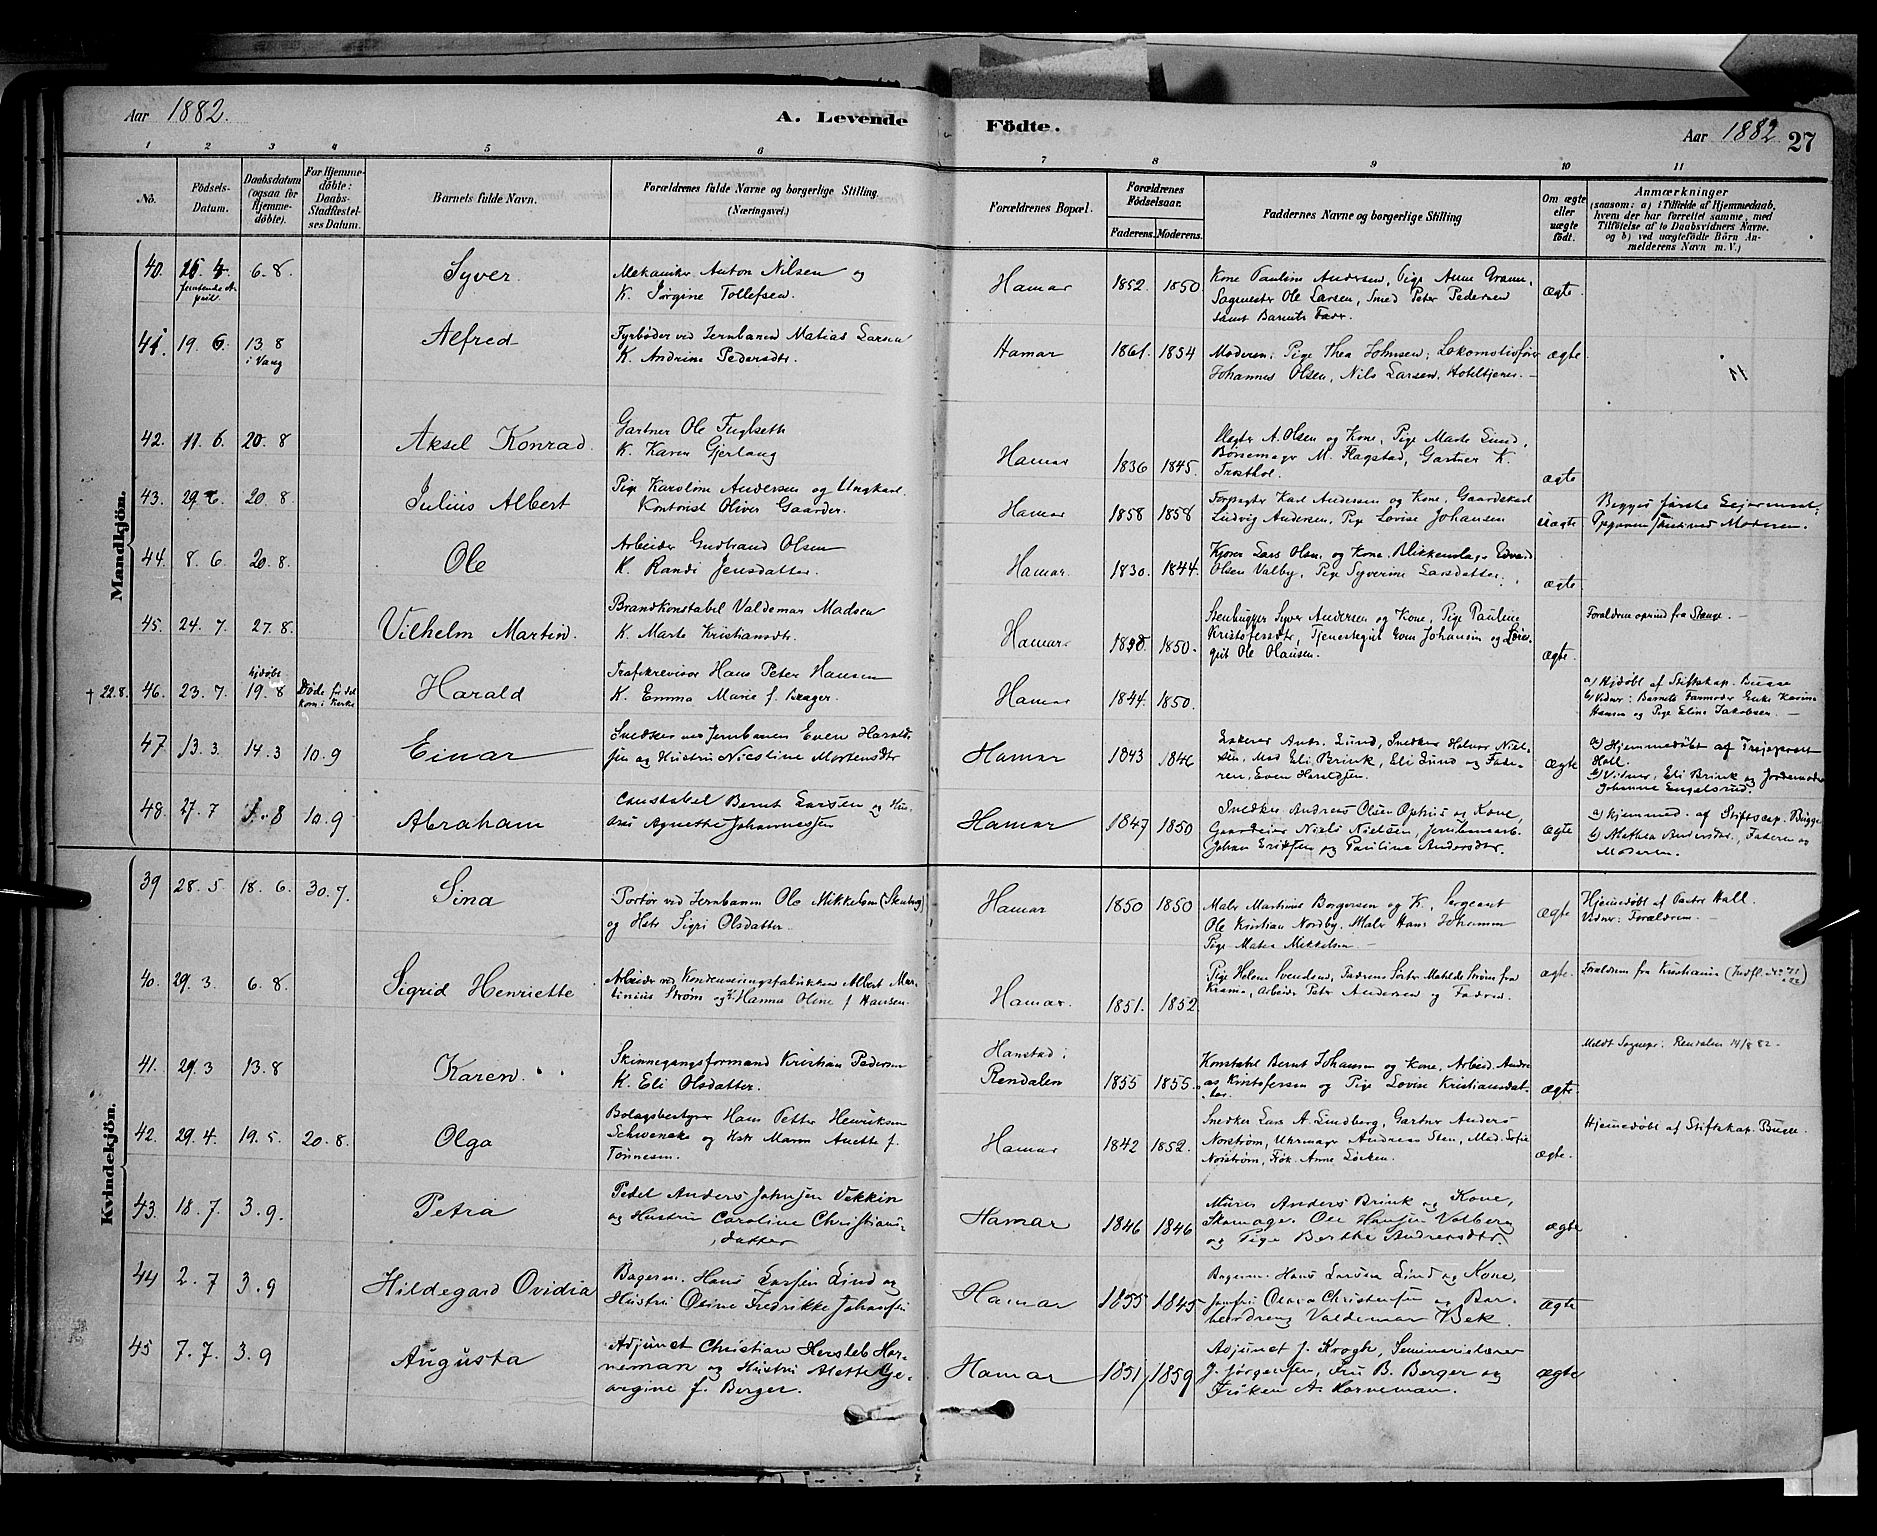 Aar 1882.
A. Levende Födte.
Aar 1882 27
1 2 3 4 5 6 7 8 9 10 11
No.
Födsels-
Datum.
Daabsdatum
(ogsaa for
Hjemme-
döbte).
For Hjemme-
döbte:
Daabs-
Stadfæstel-
ses Datum.
Barnets fulde Navn.
Forældrenes fulde Navne og borgerlige Stilling
(Næringsvei.)
Forældrenes Bopæl.
Forældrenes
Födselsaar.
Faderens. Moderens.
Faddernes Navne og borgerlige Stilling
Om ægte
eller
uægte
födt.
Anmærkninger
(saasom: a) i Tilfælde af Hjemmedaab,
hvem der har forrettet samme, med
Tilföielse af to Daabsvidners Navne,
og b) ved uægtefödte Börn An-
melderens Navn m. V.)
Mandkjön.
40. 15. 4. 6. 8.
femtende A-
pril.
Syver.
Mekaniker Anton Nilsen og
K. Jørgine Tollefsen.
Hamar 1852. 1850
Kone Pauline Andersen, Pige Anne
Sagmester Ole Larsen, Smed Peter Pedersen
samt Barnets Fader.
ægte
41. 19. 6. 13. 8
i Vang
Alfred
Fyrbøder ved Jernbanen Matias Larsen
K. Andrine Pedersdtr.
Hamar 1861. 1854
Moderen; Pige Thea Johnsen; Lokomotivfører
Johannes Olsen, Nils Larsen, Hoteltjener. —
ægte
42. 11. 6. 20. 8
Aksel Konrad.
Gartner Ole Fuglseth
K. Karen Gjerlaug
Hamar 1836 1845.
A. Olsen og Kone, Pige Marte Lund,
Børsemager M. Flagstad, Gartner K.
ægte
43. 29. 6. 20. 8.
Julius Albert
Pige Karoline Andersen og Ungkarl
Kontorist Oliver Gaarder.
Hamar 1858 1858
Forpagter Karl Andersen og Kone, Gaardskarl
Ludvig Andersen, Pige Lovise Johansen
uægte
Begges første Leiermaal,
Opgaven ved Moderen.
44. 8. 6. 20. 8.
Ole
Arbeider Gudbrand Olsen
K. Randi Jensdatter.
Hamar. 1830. 1844.
Kjører Lars Olsen og Kone, Blikkenslager Edvard
Olsen Valby, Pige Syverine Larsdatter.
ægte
45. 24. 7. 27. 8.
Vilhelm Martin.
Brandkonstabel Valdemar Madsen
K. Marte Kristiansdtr.
Hamar. 1850. 1850.
Stenhugger Syver Andersen og Kone, Pige Pauline
Kristofersdtr, Tjenestegut Even Johansen og
gut Ole Olausen.
ægte.
Forældrene oprind. fra Stange. —
† 22.8. 46. 23. 7. hjdøbt
19. 8 Døde før det
kom i Kirke
Harald
Trafikrevisor Hans Peter Hansen
K. Emma Marie f. Brager.
Hamar 1844. 1850.
a) Hjdøbt af Stiftskap. Bugge
b) Vidner: Barnets Farmoder Enke Karine
Hansen og Pige Eline Jakobsen. —
47 13. 3. 14. 3 10. 9
Einar
Snedker ved Jernbanen Even Harald-
sen og Hustru Nicoline Mortensdtr
Hamar 1843 1846
Andr. Lund, Snedker Helmer Niel-
sen, Mad. Eli Brink, Eli Lund og Fade-
ren, Even Haraldsen.
ægte
a) Hjemmedøbt af
Hall.
b) Vidner, Eli Brink og Jordemoder
Johanne Engelsrud.
48. 27. 7 1. 8 10. 9
Abraham
Constabel Bernt Larsen og Hu-
stru Agnethe Johannessen
Hamar 1847 1850
Snedker Andreas Olsen Ophus og Kone,
Gaardeier Niels Nielsen, Jernbanearb.
Johan Eriksen og Pauline Andersdtr.
ægte
a) Hjemmed. af Stiftscap. Bugge
b) Alethea Andersdtr., Faderen og
Moderen.
Kvindekjön.
39 28. 5 18. 6. 30. 7.
Sina
Portør ved Jernbanen Ole Mikkelsen
og Hstr Sigri Olsdatter.
Hamar 1850 1850
Maler Martinus Borgersen og K., Sergeant
Ole Kristian Nordby, Maler Hans Johansen
Pige Matea Mikkelsen. —
ægte
Hjemmedøbt af Pastor Hall.
Vidner: Forældrene. —
40. 29. 3. 6. 8.
Sigrid Henriette
Arbeider ved Kondenseringsfabrikken Albert Mar-
tinius Strøm og K. Hanna Oline f. Hansen.
Hamar. 1851. 1852.
Pige Helene Svendsen, Faderens Søster Matilde Strøm fra
Arbeider Peter Andersen og Faderen.
ægte.
Forældrene fra Kristiania
41. 29. 3 13. 8
Karen.
Skinnegangsformand Kristian Pedersen
K. Eli Olsdatter.
Hanstad i
Rendalen 1855 1855.
Konstabel Bernt Johansen og Kone, Arbeid. Andre-
as Kristofersen og Pige Lovise Kristiansdat-
ter.
ægte
Meldt Sognepr. i Rendalen 14/8 82 —
42. 29. 4. 19. 5. 20. 8.
Olga
Bolagsbestyrer Hans Petter Henriksen
Schwencke og Hstr Maren Anette f.
Tønnesen.
Hamar 1842 1852.
Snedker Lars A. Lundberg, Gartner Anders
Norstrøm, Uhrmager Andreas Sten, Mad. Sofie
Norstrøm, Frøk. Anne Lorken.
ægte.
Hjemmedøbt af Stiftskap. Bugge.
43. 18. 7. 3. 9.
Petra
Pedel Anders Johnsen Vekkin
og Hustru Caroline Christians-
datter
Hamar 1846 1846
Murer Anders Brink og Kone,
Skomager Ole Hansen Valberg
og Pige Berthe Andersdtr.
ægte
44 2. 7 3. 9
Hildegard Ovidia
Bagerm. Hans Larsen Lind og
Hustru Osine Fredrikke Johansen
Hamar 1855 1845
Bagerm. Hans Larsen Lind og Kone,
Jomfru Christensen og Bar-
berdreng Valdemar Bek.
ægte
45 7. 7. 3. 9
Augusta
Adjunct Christian Hersleb Hor-
neman og Hustru Alette Ge-
orgine f. Berger.
Hamar 1851 1859
Adjunct J. Krogh, Seminarielærer
J. Jørgensen, Fru B. Berger og
Frøken A. Horneman.
ægte